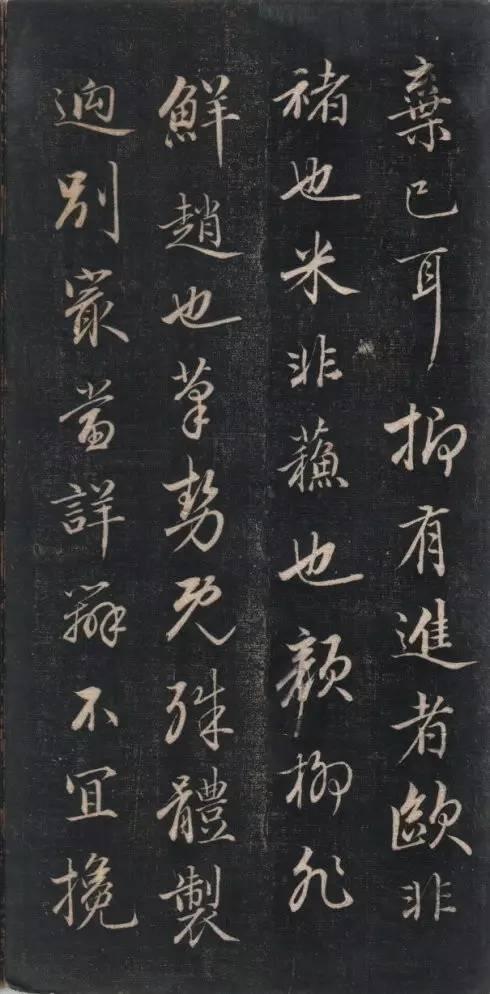 棄已耳抑有進者歐非
褚也米非蘓也顏柳非
鮮趙也筆勢既殊體製
迥別㝡當詳辨不宜攙